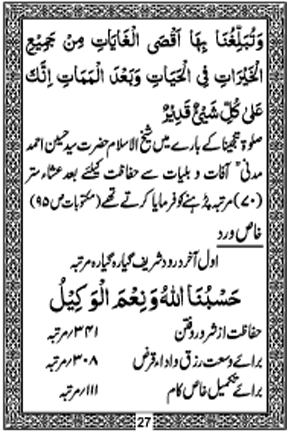 وَتُبَلِّغُنَا بِهَا اَقْصَى الْغَايَاتِ مِنْ جَمِيْعِ
الْخَيْرَاتِ فِى الْحَيَاتِ وَبَعْدَ الْمَمَاتِ اِنَّكَ
عَلٰى كُلِّ شَيْئٍ قَدِيْرٌ
صلوٰۃ تنجینا کے بارے میں شیخ الاسلام حضرت سید حسین احمد
مدنیؒ آفات و بلیات سے حفاظت کیلئے بعد عشاء ستر
(۷۰) مرتبہ پڑہنے کو فرمایا کرتے تھے (مکتوبات ص ۹۵)
خاص ورد
اول آخر درود شریف گیارہ گیارہ مرتبہ
حَسْبُنَا اللهُ وَنِعْمَ الْوَكِيْلُ
حفاظت از شرور و فتن ۳۴۱/مرتبہ
برائے وسعت رزق و اداء قرض ۳۰۸/مرتبہ
برائے تکمیل خاص کام ۱۱۱/مرتبہ
27